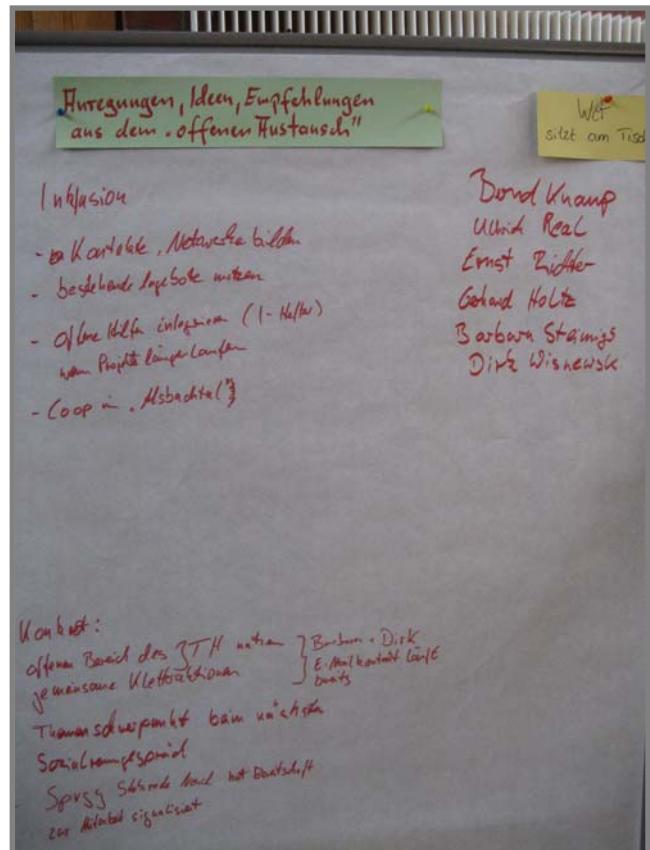 Anregungen, Ideen, Empfehlungen
aus dem "offenen Austausch"
Wer
sitzt am Tisch
Inklusion
- Kontakte, Netzwerke bilden
- bestehende Angebote nutzen
- offene Hilfen integrieren (I-Helfer)
wenn Projekte länger laufen
- Coop in "Alsbachtal"
Bernd Knaup
Ullrich Real
Ernst Richter
Gerhard Holtz
Barbara Steinigs
Dirk Wisnewsk
Konkret:
offenen Bereich des JTH nutzen
gemeinsame Kletteraktionen
Barbara + Dirk
E-Mailkontakt läuft
bereits
Themenschwerpunkt beim nächsten
Sozialraumgespräch
Nord hat Bereitschaft
zur Mitarbeit signalisiert